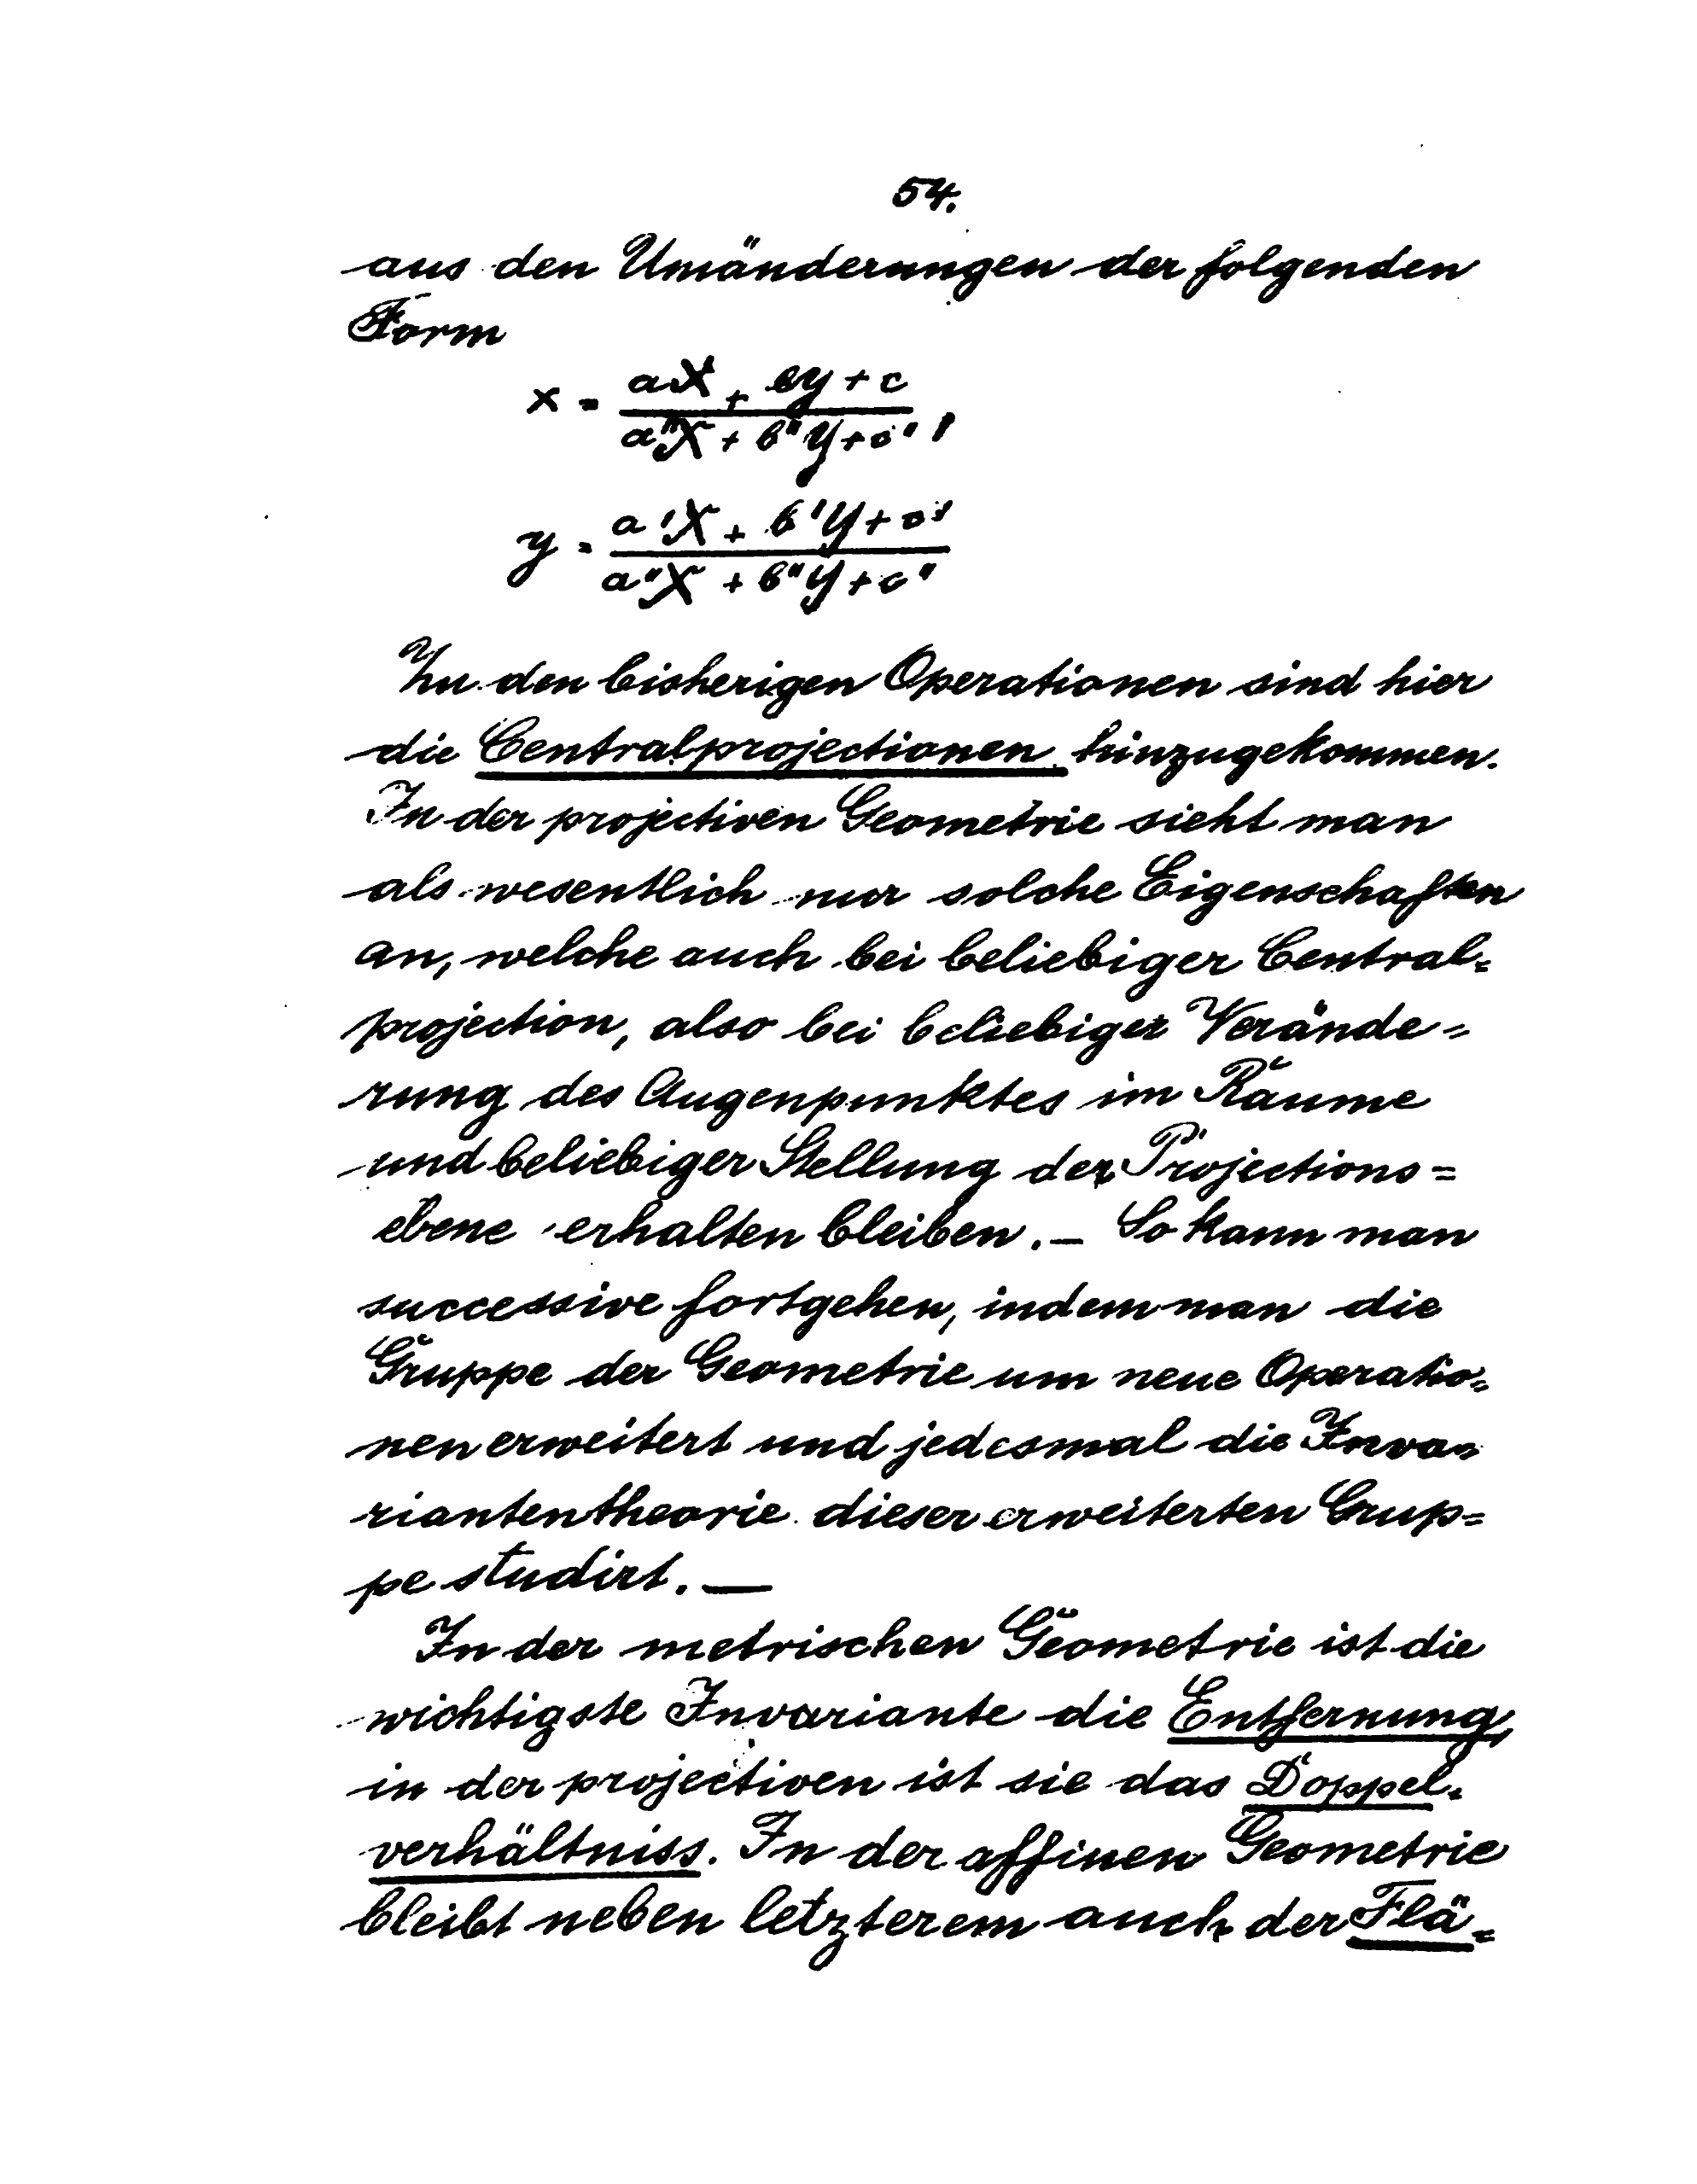 54.
aus den Umänderungen der folgenden
Form
x = (aX + by + c) / (a"X + b"Y + c"),
y = (a'X + b'Y + c') / (a"X + b"Y + c")
Zu den bisherigen Operationen sind hier
die Centralprojectionen hinzugekommen.
In der projectiven Geometrie sieht man
als wesentlich nur solche Eigenschaften
an, welche auch bei beliebiger Central=
projection, also bei beliebiger Verände=
rung des Augenpunktes im Raume
und beliebiger Stellung der Projections=
ebene erhalten bleiben. — So kann man
successive fortgehen, indem man die
Gruppe der Geometrie um neue Operatio=
nen erweitert und jedesmal die Inva=
riantentheorie dieser erweiterten Grup=
pe studirt. —
In der metrischen Geometrie ist die
wichtigste Invariante die Entfernung,
in der projectiven ist sie das Doppel=
verhältniss. In der affinen Geometrie
bleibt neben letzterem auch der Flä=